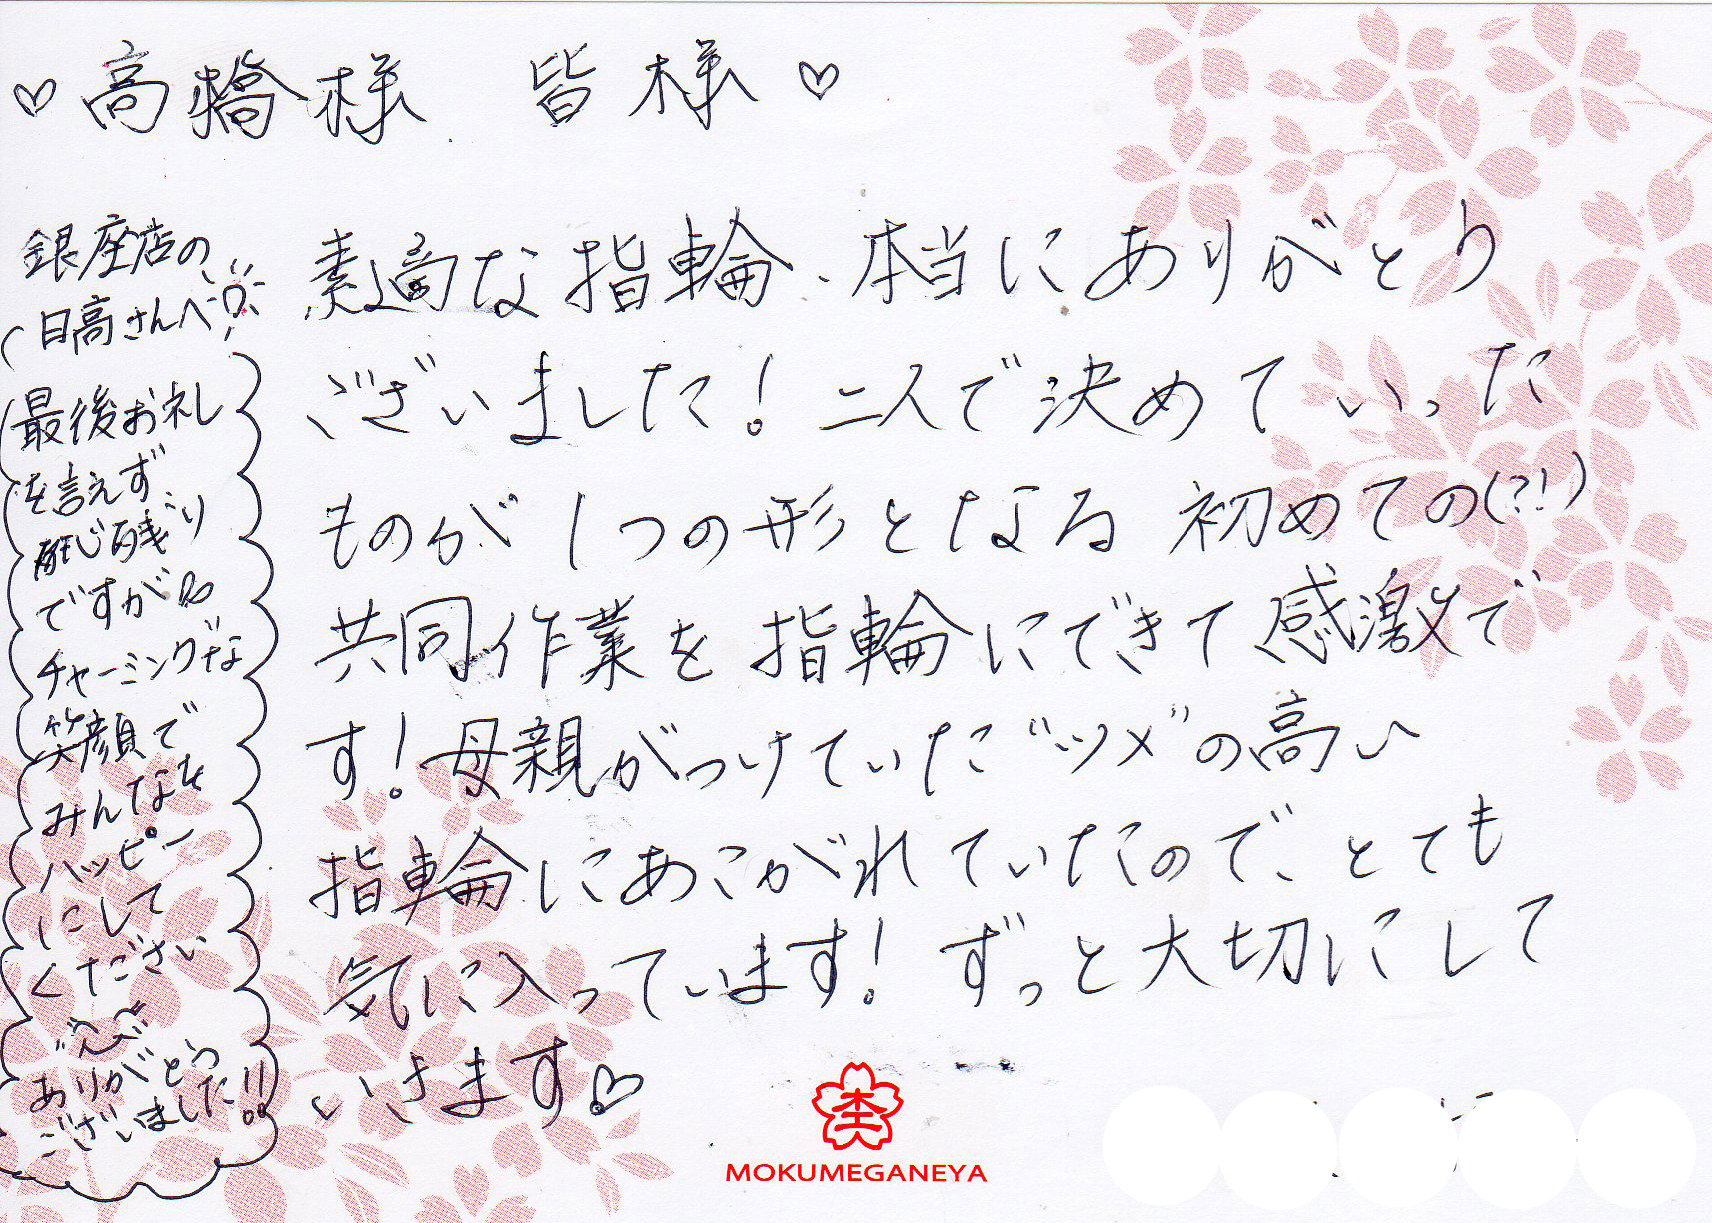 ♡高橋様 皆様♡
素適な指輪、本当にありがとう
ございました!二人で決めていった
ものが1つの形となる初めての(?!)
共同作業を指輪にできて感激で
す!母親がつけていた"ツメ"の高い
指輪にあこがれていたので、とても
気に入っています!ずっと大切にして
いきます♡
銀座店の
日高さんへ
最後お礼
を言えず
残り
ですが
チャーミングな
笑顔で
みんなを
ハッピー
にして
ください
ありがとう
ございました!!
MOKUMEGANEYA